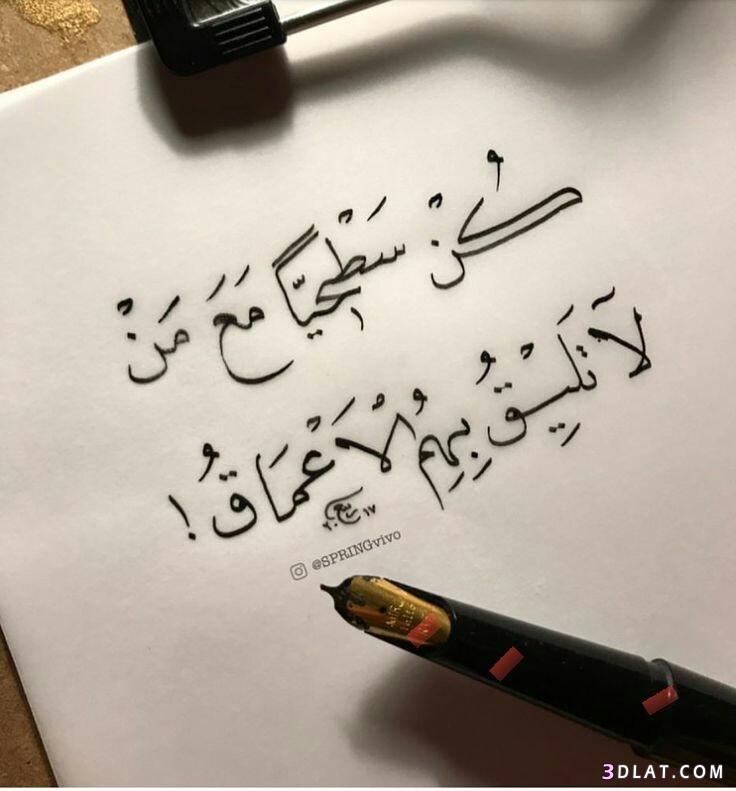 كُنْ سَطْحِيًّا مَعَ مَنْ
لَا تَلِيْقُ بِهِمُ الْأَعْمَاقُ !
ربيع
٢٠١٧
@SPRINGvivo
3DLAT.COM